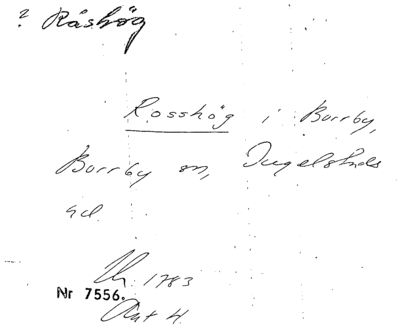 ? Råshög
Rosshög i Borrby,
Borrby sn, Ingelstads
hd.
1783
Nr 7556.
Akt 4.